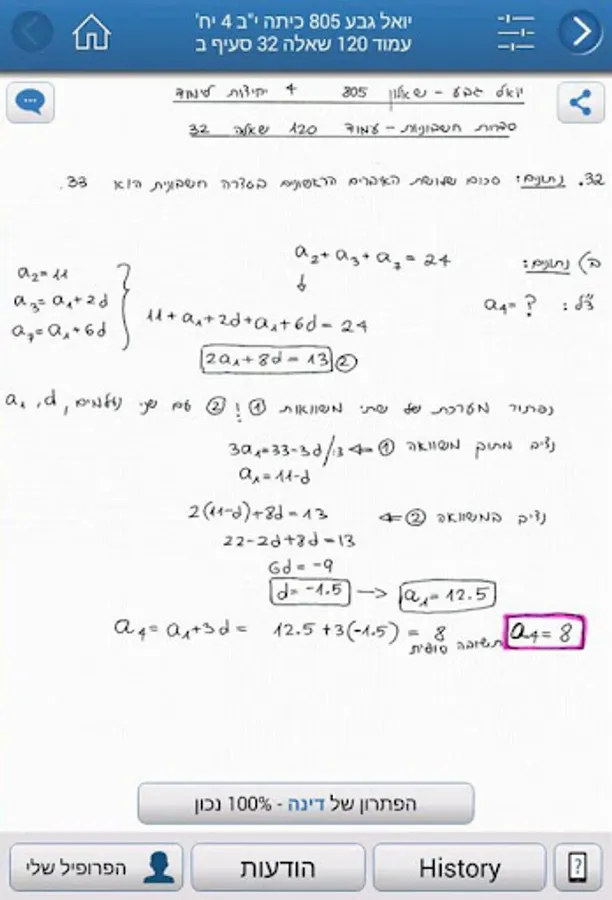 יואל גבע 805 כיתה י"ב 4 יח'
עמוד 120 שאלה 32 סעיף ב
יואל גבע - שאלון 805 4 יחידות לימוד
סדרות חשבוניות - עמוד 120 שאלה 32
32. נתונים: סכום שלושת האיברים הראשונים בסדרה חשבונית הוא 33.
ב) נתונים: a₂+a₃+a₇=24
צ"ל: a₄=?
a₂=11
a₃=a₁+2d
a₇=a₁+6d
11+a₁+2d+a₁+6d=24
2a₁+8d=13 ②
נפתור מערכת של שתי משוואות ① ו ② עם שני נעלמים, a₁,d
נציב מתוך משוואה ① ⇐ 3a₁=33-3d/:3
a₁=11-d
נציב במשוואה ② ⇐ 2(11-d)+8d=13
22-2d+8d=13
6d=-9
d=-1.5 → a₁=12.5
a₄=a₁+3d= 12.5+3(-1.5) = 8 a₄=8
תשובה סופית
הפתרון של דינה - 100% נכון
הפרופיל שלי
הודעות
History
?